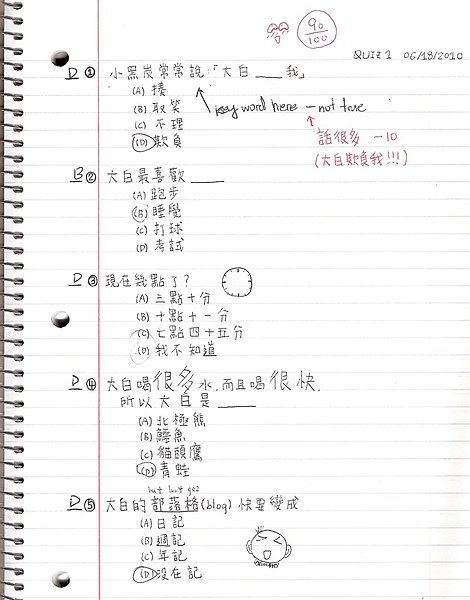 90
100
QUIZ 1 06/18/2010
D ① 小黑炭常常說:「大白 ___ 我」
(A) 揍
(B) 取笑
(C) 不理
(D) 欺負
key word here - not true
話很多 -10
(大白欺負我!!!)
B ② 大白最喜歡 ____
(A) 跑步
(B) 睡覺
(C) 打球
(D) 考試
D ③ 現在幾點了?
(A) 三點十分
(B) 十點十一分
(C) 七點四十五分
(D) 我不知道
D ④ 大白喝很多水,而且喝很快,
所以大白是 ____
(A) 北極熊
(B) 鱷魚
(C) 貓頭鷹
(D) 青蛙
D ⑤ 大白的部落格(blog)快要變成
(A) 日記
(B) 週記
(C) 年記
(D) 沒在記